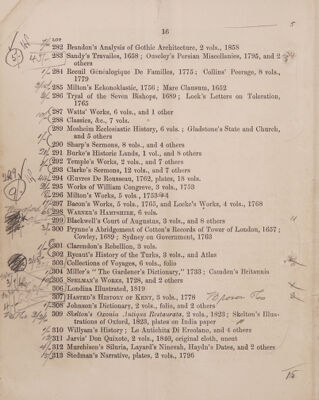 16
LOT
282 Brandon's Analysis of Gothic Architecture, 2 vols., 1858
283 Sandy's Travailes, 1658; Ouseley's Persian Miscellanies, 1795, and 2
others
284 Recuil Généalogique De Familles, 1775; Collins' Peerage, 8 vols.,
1779
285 Milton's Eckonoklastic, 1756; Mare Clausum, 1652
286 Tryal of the Seven Bishops, 1689; Lock's Letters on Toleration,
1765
287 Watts' Works, 6 vols., and 1 other
288 Classics, &c., 7 vols.
289 Mosheim Ecclesiastic History, 6 vols.; Gladstone's State and Church,
and 5 others
290 Sharp's Sermons, 8 vols., and 4 others
291 Burke's Historic Lands, 1 vol., and 8 others
292 Temple's Works, 2 vols., and 7 others
293 Clarke's Sermons, 12 vols., and 7 others
294 Œuvres De Rousseau, 1762, plates, 18 vols.
295 Works of William Congreve, 3 vols., 1753
296 Milton's Works, 5 vols., 1753
297 Bacon's Works, 5 vols., 1765, and Locke's Works, 4 vols., 1768
298 WARNER'S HAMPSHIRE, 6 vols.
299 Blackwell's Court of Augustus, 3 vols., and 8 others
300 Prynne's Abridgement of Cotton's Records of Tower of London, 1657;
Cowley, 1689; Sydney on Government, 1763
301 Clarendon's Rebellion, 3 vols.
302 Rycaut's History of the Turks, 3 vols., and Atlas
303 Collections of Voyages, 6 vols., folio
304 Miller's "The Gardener's Dictionary," 1733; Camden's Britannia
305 SPELMAN'S WORKS, 1723, and 2 others
306 Londina Illustrated, 1819
307 HASTED'S HISTORY OF KENT, 3 vols., 1778
308 Johnson's Dictionary, 2 vols., folio, and 2 others
309 Skelton's Oxonia Antiqua Restaurata, 2 vols., 1823; Skelton's Illus-
trations of Oxford, 1823, plates on India paper
310 Willyam's History; Le Antichita Di Ercolano, and 4 others
311 Jarvis' Don Quixote, 2 vols., 1840, original cloth, uncut
312 Murchison's Siluria, Layard's Nineveh, Haydn's Dates, and 2 others
313 Stedman's Narrative, plates, 2 vols., 1796